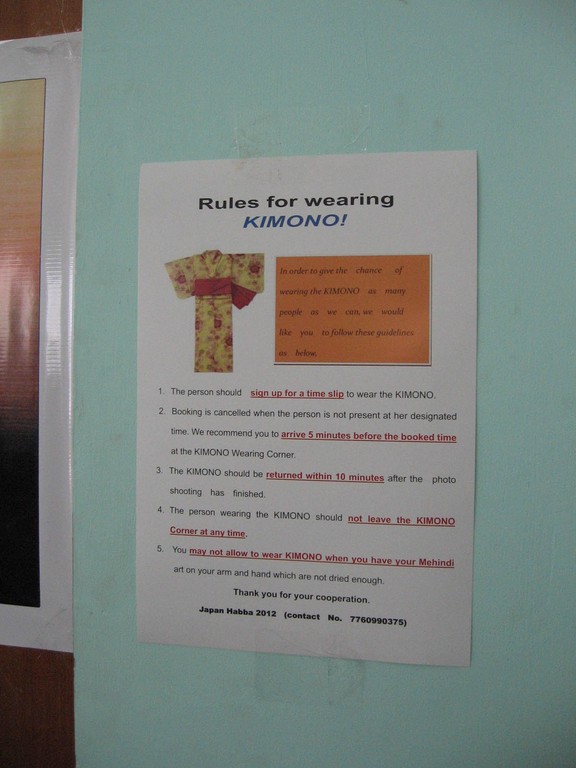 Rules for wearing
KIMONO!
In order to give the chance of
wearing the KIMONO as many
people as we can, we would
like you to follow these guidelines
as below,
1. The person should sign up for a time slip to wear the KIMONO.
2. Booking is cancelled when the person is not present at her designated
time. We recommend you to arrive 5 minutes before the booked time
at the KIMONO Wearing Corner.
3. The KIMONO should be returned within 10 minutes after the photo
shooting has finished.
4. The person wearing the KIMONO should not leave the KIMONO
Corner at any time.
5. You may not allow to wear KIMONO when you have your Mehindi
art on your arm and hand which are not dried enough.
Thank you for your cooperation.
Japan Habba 2012 (contact No. 7760990375)